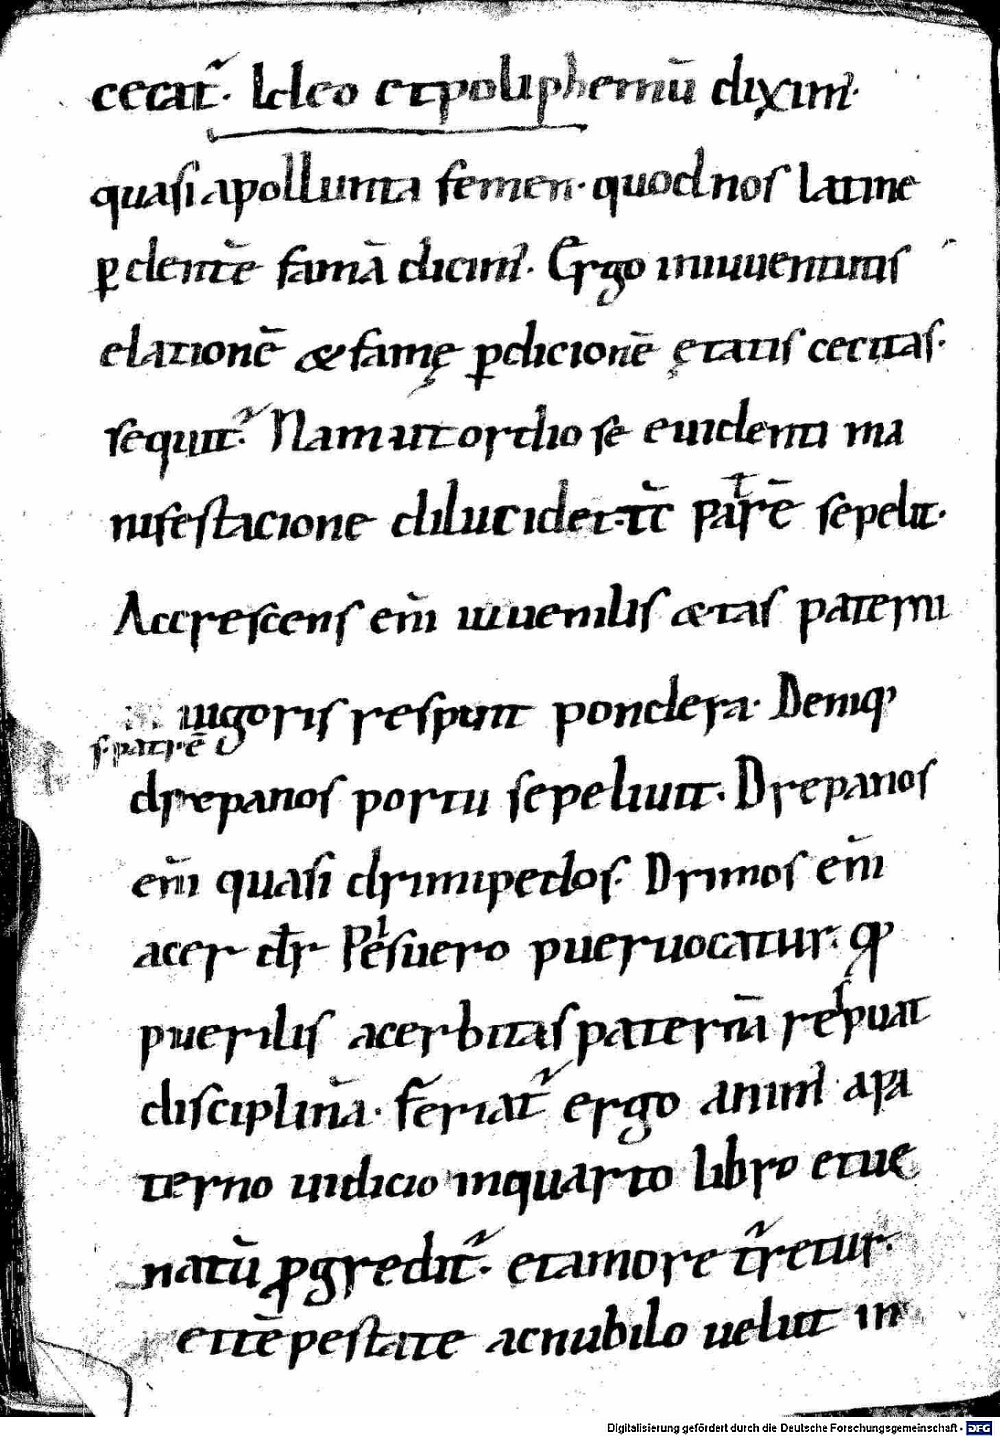 cecat᷑. Ideo et poliphemū dixim᷒.
quasi apollunta femen. quod nos latine
ꝑdentē famā dicim᷒. Ergo iniuuentutis
elationē & famę ꝑdicionē ętatis cecitas.
sequit᷑. Nam ut ordio se euidenti ma
nifestacione dilucidet. tc̄ patrē sepelit.
Accrescens em̄ iuuenilis ætas paterni
uigoris respuit pondera. Deniqꝫ
s. patrē
drepanos portu sepeliuit. Drepanos
em̄ quasi drimipedos. Drimos em̄
acer dr̄ Pes uero puer uocatur. qꝫ
puerilis acerbitas paternā respuat
disciplinā. Feriat᷑ ergo anim᷒ a pa
terno uidicio in quarto libro et ue
natū ꝓgredit᷑. et amore t᷑retur.
et tēpestate ac nubilo uelut in